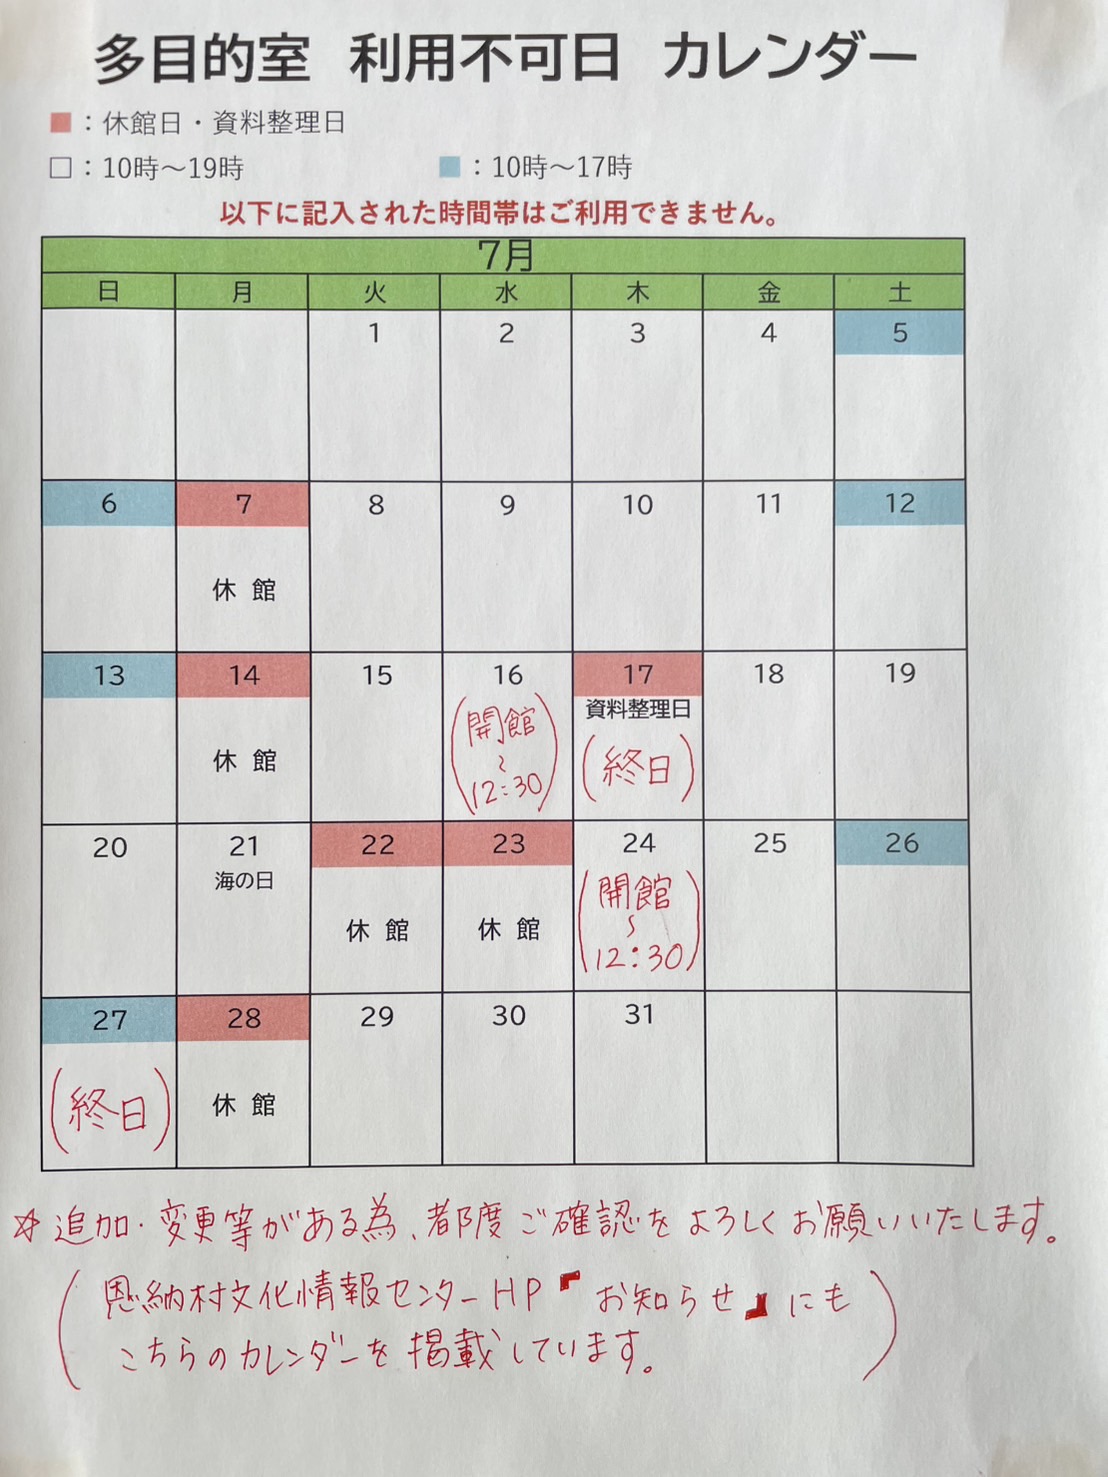 多目的室 利用不可日 カレンダー
■：休館日・資料整理日
□：10時～19時 ■：10時～17時
以下に記入された時間帯はご利用できません。
7月
日 月 火 水 木 金 土
1 2 3 4 5
6 7 8 9 10 11 12
休 館
13 14 15 16 17 18 19
資料整理日
休 館
(開館
～
12:30)
(終日)
20 21 22 23 24 25 26
海の日
休 館 休 館
(開館
～
12:30)
27 28 29 30 31
(終日) 休 館
☆追加・変更等がある為、都度ご確認をよろしくお願いいたします。
(恩納村文化情報センターHP『お知らせ』にも
こちらのカレンダーを掲載しています。)